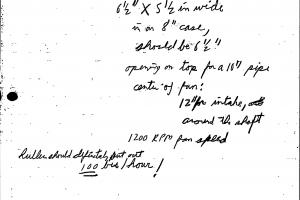 6½" X 5½ in wide
in an 8" case,
should be 6½"
opening on top for a 10" pipe
center of fan:
12" for intake, all
around the shaft
1200 RPM fan speed
huller should definitely put out
100 bus/hour!